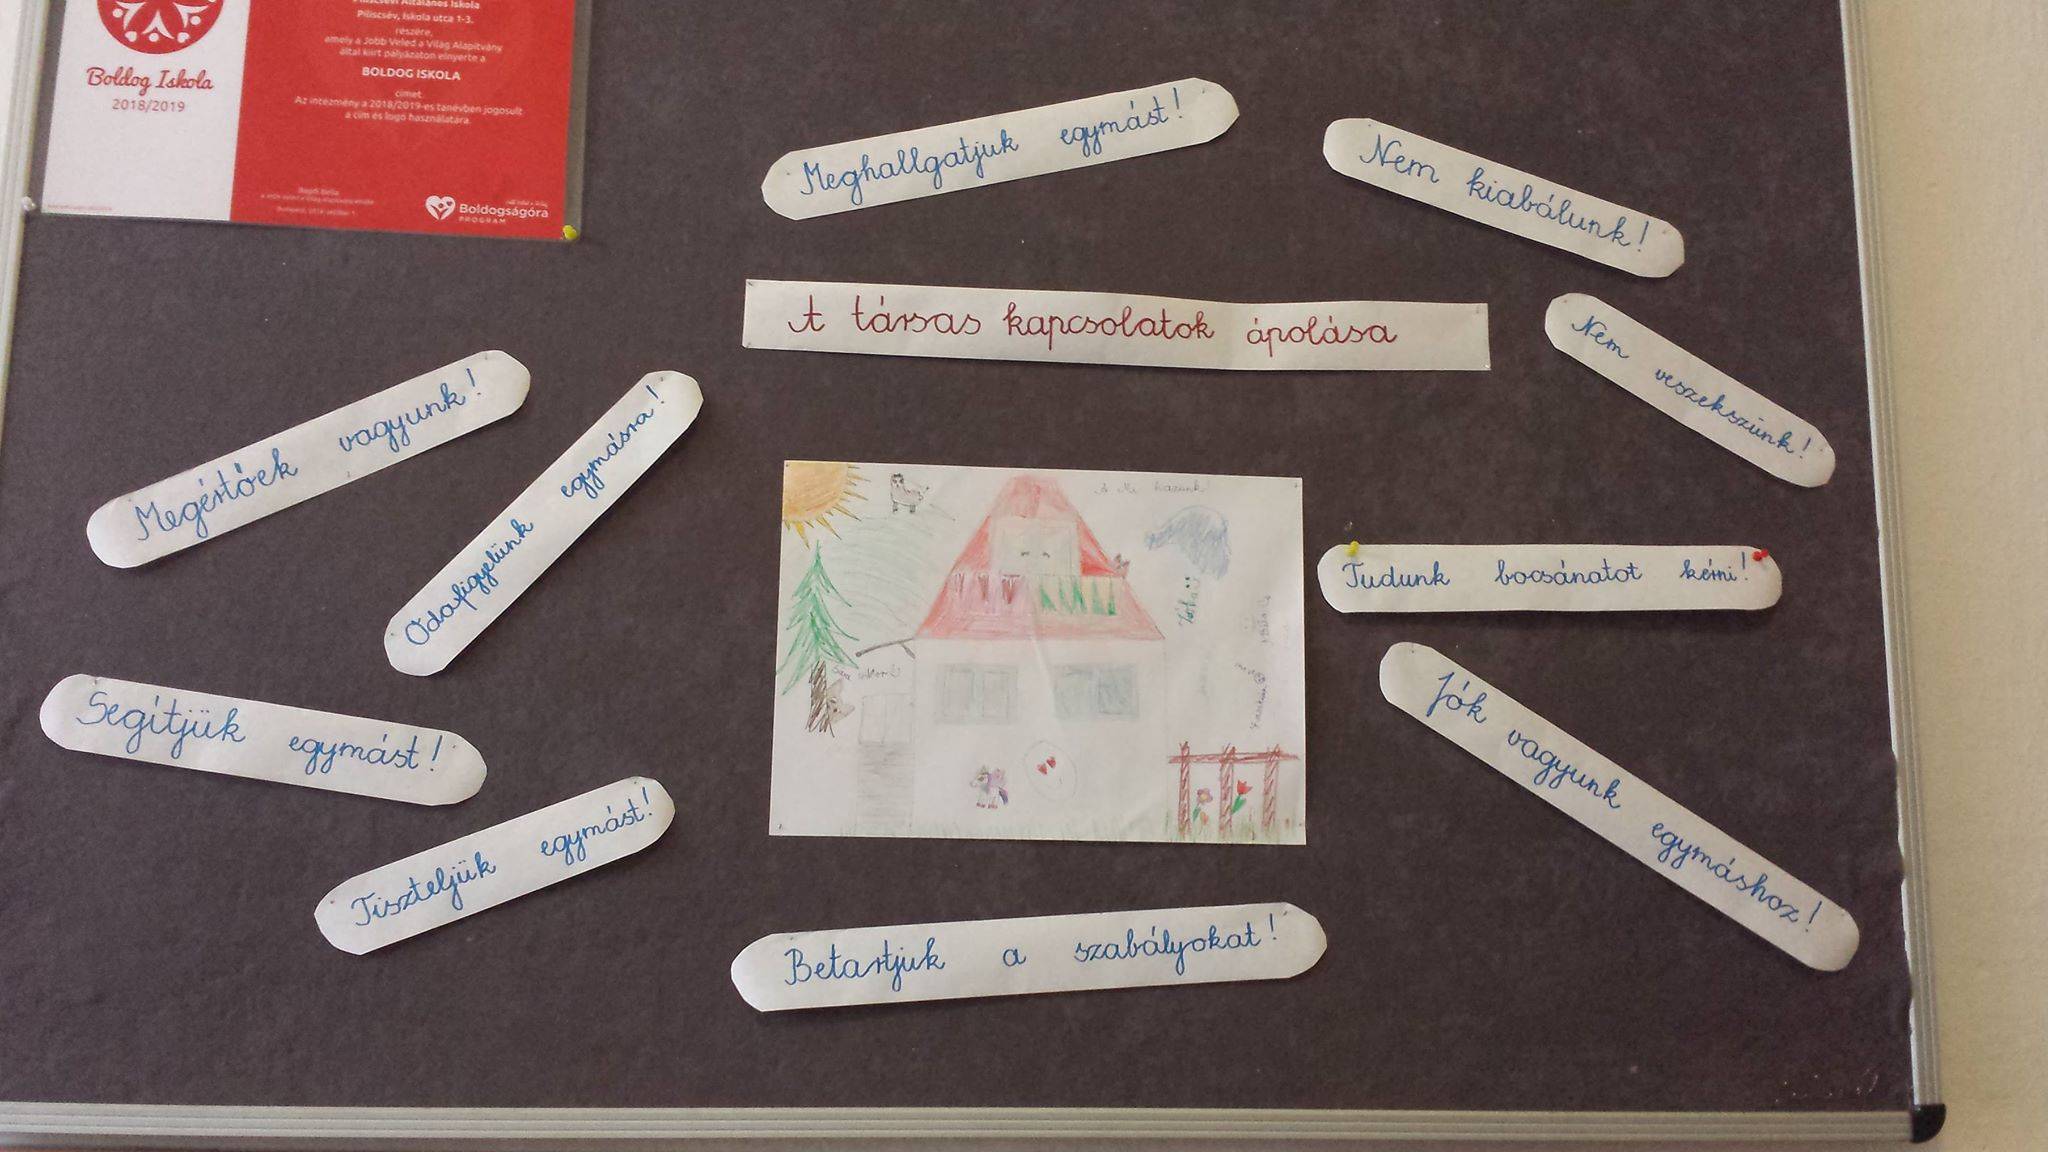 Piliscsévi Általános Iskola
Piliscsév, Iskola utca 1-3.
részére,
amely a Jobb Veled a Világ Alapítvány
által kiírt pályázaton elnyerte a
BOLDOG ISKOLA
címet.
Az intézmény a 2018/2019-es tanévben jogosult
a cím és logó használatára.
Boldog Iskola
2018/2019
Boldogságóra
PROGRAM
Meghallgatjuk egymást!
Nem kiabálunk!
A társas kapcsolatok ápolása
Nem veszekszünk!
Megértőek vagyunk!
Odafigyelünk egymásra!
A Mi házunk!
Tudunk bocsánatot kérni!
Segítjük egymást!
Jók vagyunk egymáshoz!
Tiszteljük egymást!
Betartjuk a szabályokat!